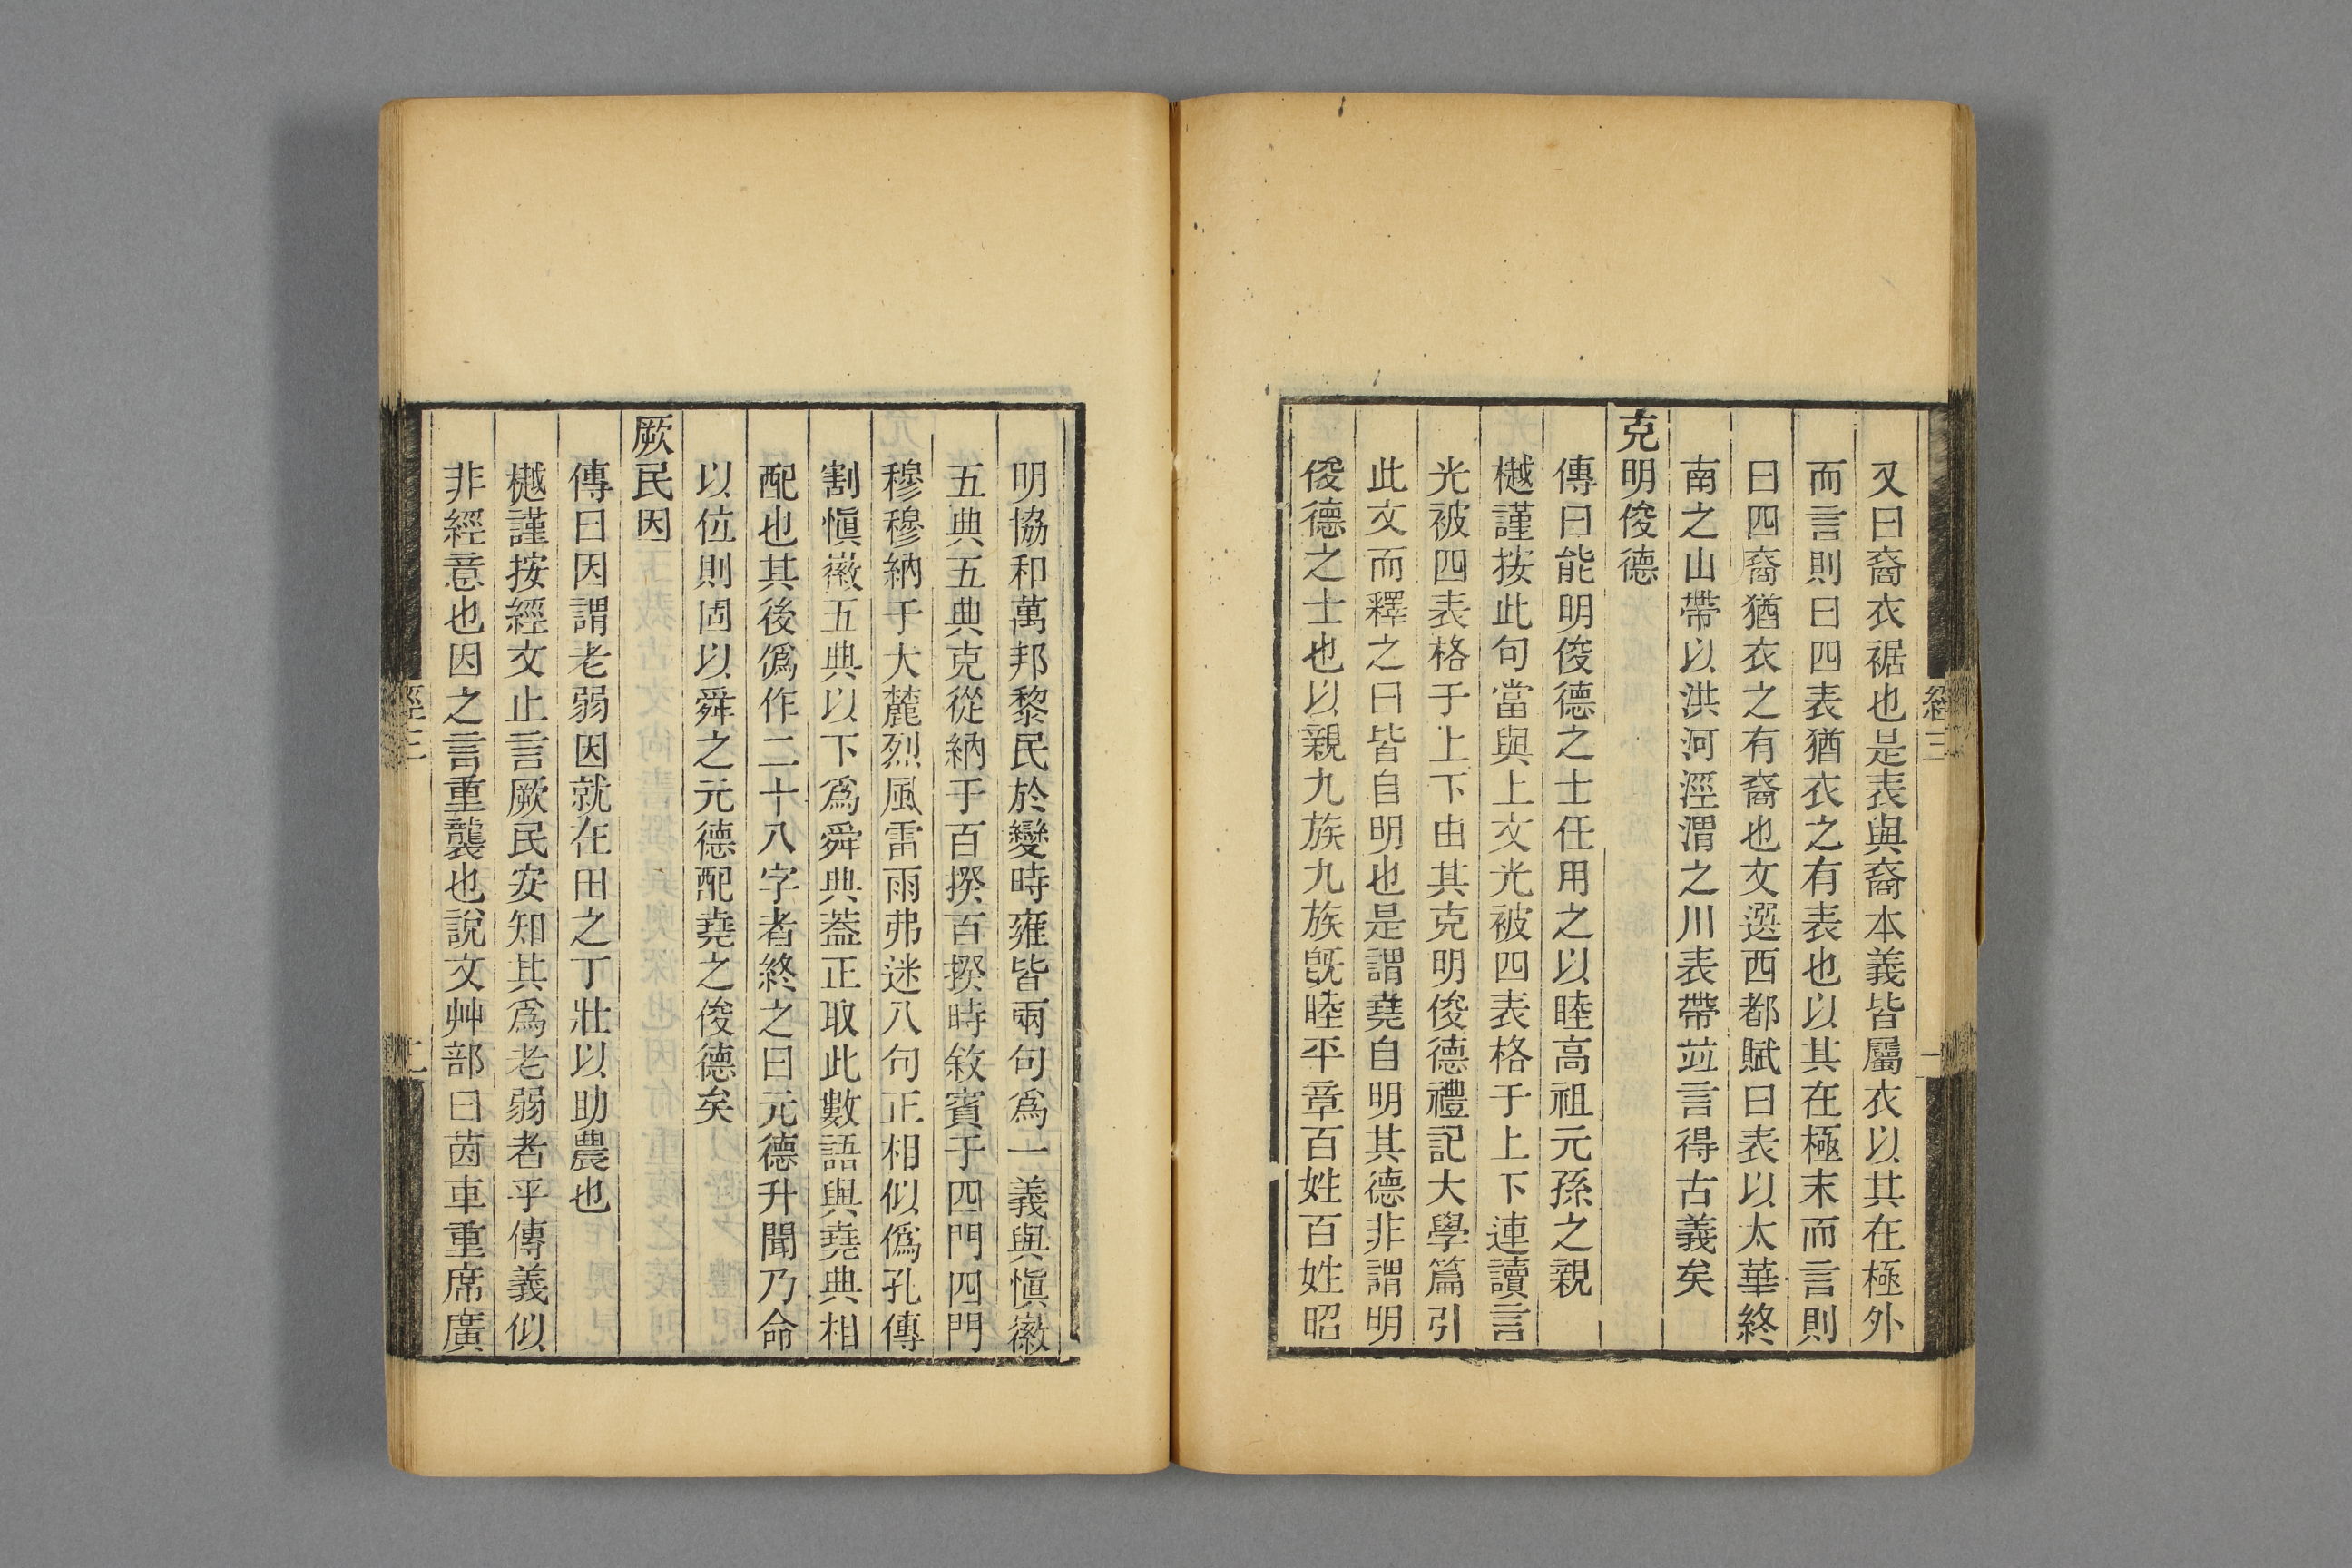 又曰裔衣裾也是表與裔本義皆屬衣以其在極外
而言則曰四表猶衣之有表也以其在極末而言則
曰四裔猶衣之有裔也文選西都賦曰表以太華終
南之山帶以洪河涇渭之川表帶竝言得古義矣
克明俊德
傳曰能明俊德之士任用之以睦高祖元孫之親
樾謹按此句當與上文光被四表格于上下連讀言
光被四表格于上下由其克明俊德禮記大學篇引
此文而釋之曰皆自明也是謂堯自明其德非謂明
俊德之士也以親九族九族旣睦平章百姓百姓昭
明協和萬邦黎民於變時雍皆兩句爲一義與愼徽
五典五典克從納于百揆百揆時敘賓于四門四門
穆穆納于大麓烈風雷雨弗迷八句正相似僞孔傳
割愼徽五典以下爲舜典葢正取此數語與堯典相
配也其後僞作二十八字者終之曰元德升聞乃命
以位則固以舜之元德配堯之俊德矣
厥民因
傳曰因謂老弱因就在田之丁壯以助農也
樾謹按經文止言厥民安知其爲老弱者乎傳義似
非經意也因之言重襲也說文艸部曰茵車重席廣
經三